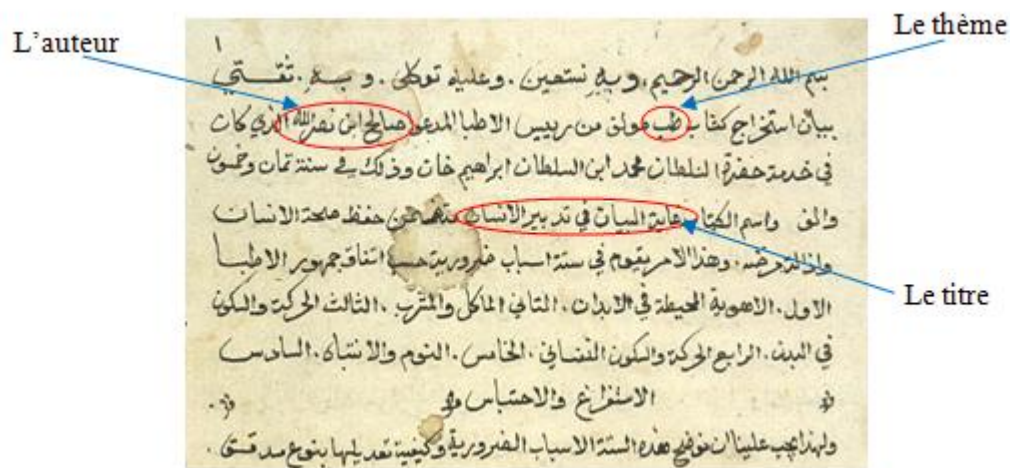 L'auteur
Le thème
١
بسم الله الرحمن الرحيم. وبه نستعين. وعليه توكلى. وبه. ثقتي
بيان استخراج كتاب طب مولف من رييس الاطبا المدعو صالح ابن نصر الله الذي كان
في خدمة حضرة السلطان محمد ابن السلطان ابراهيم خان وذلك في سنة تمان وخمسون
والف واسم الكتاب غاية البيان في تدبير الانسان من حفظ صحة الانسان
وازالة مرضه. وهذا الامر يقوم في ستة اسباب ضرورية حسب اتفاق جمهور الاطبا
الاول. الاهوية المحيطة في الابدان. التاني الماكل والمشرب. الثالث الحركة والسكون
في البدن. الرابع الحركة والسكون النفساني. الخامس. النوم والانتباه. السادس
الاستفراغ والاحتباس
ولهذا يجب علينا ان نوضح هذه الستة الاسباب الضرورية وكيفية تعديلها بنوع مدقق.
Le titre